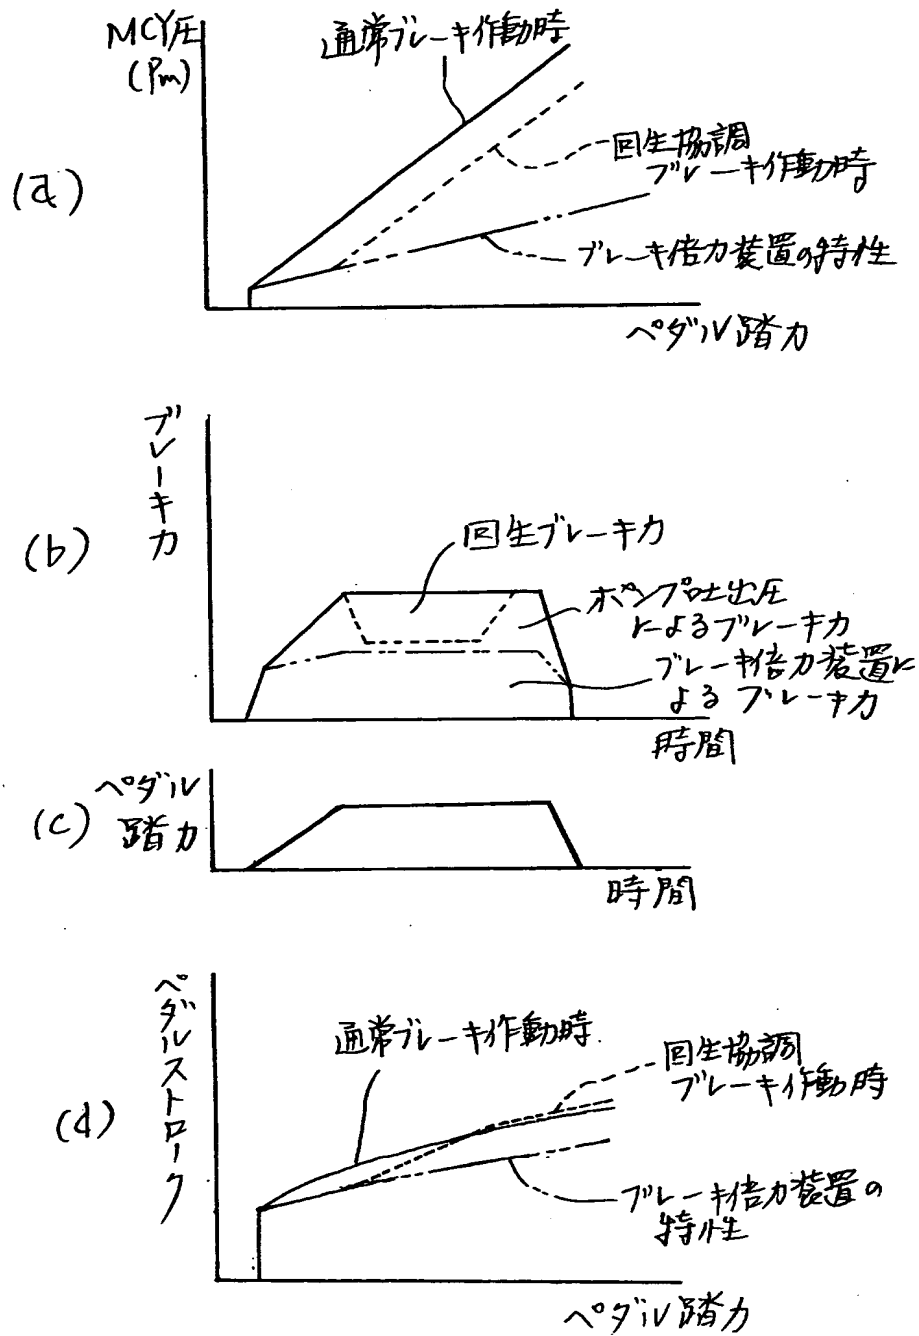 MCY圧
(Pm)
通常ブレーキ作動時
回生協調
ブレーキ作動時
(a)
ブレーキ倍力装置の特性
ペダル踏力
ブレーキ力
(b)
回生ブレーキ力
ポンプ吐出圧
によるブレーキ力
ブレーキ倍力装置に
よるブレーキ力
時間
(c)
ペダル
踏力
時間
ペダルストローク
(d)
通常ブレーキ作動時
回生協調
ブレーキ作動時
ブレーキ倍力装置の
特性
ペダル踏力